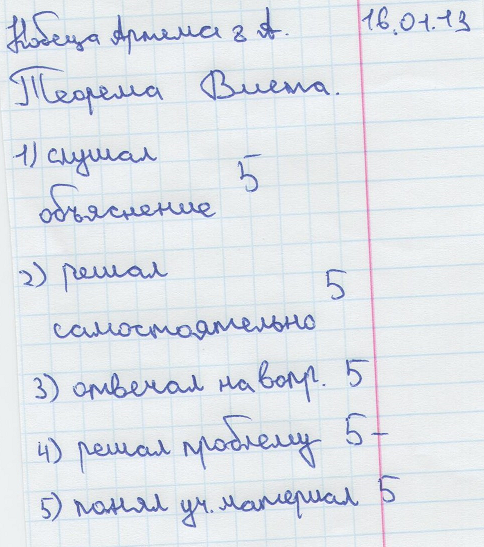 Кобеца Артема 8 А. 16.01.13
Теорема Виета.
1) слушал
объяснение 5
2) решал
самостоятельно 5
3) отвечал на вопр. 5
4) решал проблему 5-
5) понял уч. материал 5